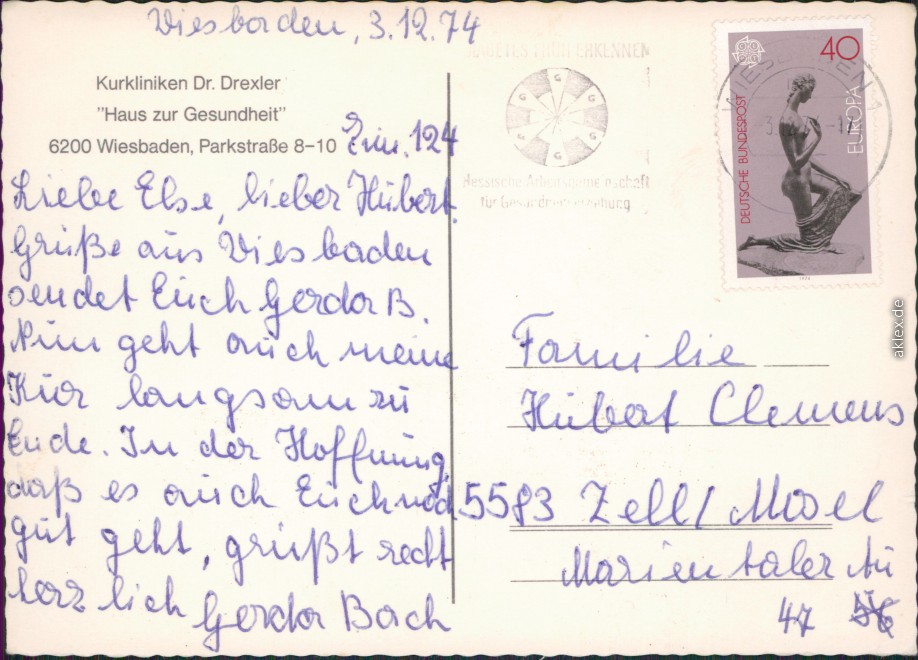 Wiesbaden, 3.12.74
Kurkliniken Dr. Drexler
"Haus zur Gesundheit"
6200 Wiesbaden, Parkstraße 8-10 Zim. 124
Liebe Else, lieber Hubert.
Grüße aus Wiesbaden
sendet Euch Gerda B.
Nun geht auch meine
Kur langsam zu
Ende. In der Hoffnung,
daß es auch Euch noch
gut geht, grüßt recht
herzlich Gerda Bach
DIABETES FRÜH ERKENNEN
G G G G G G
Hessische Arbeitsgemeinschaft
für Gesundheitserziehung
WIESBADEN 1
40
DEUTSCHE BUNDESPOST
EUROPA
Familie
Hubert Clemens
5583 Zell/Mosel
Marientaler Au
47
aklex.de